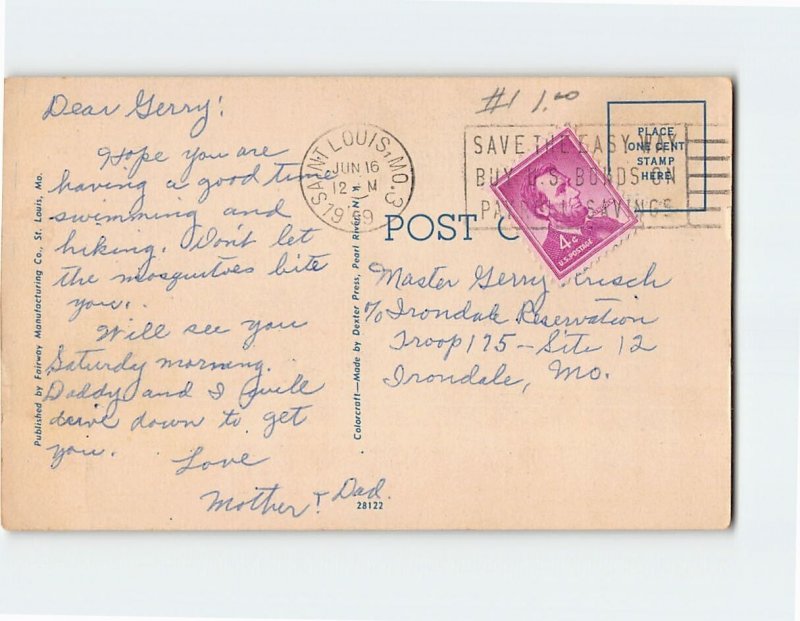 Dear Gerry!
Hope you are
having a good time
swimming and
hiking. Don't let
the mosquitoes bite
you..
Will see you
Saturdy morning.
Daddy and I will
drive down to get
you.
Love
Mother & Dad.
28122
Published by Fairway Manufacturing Co., St. Louis, Mo.
Colorcraft—Made by Dexter Press, Pearl River, N.Y.
#1 1.00
SAINT LOUIS, MO. 3
JUN 16
12 M
1959
SAVE THE EASY WAY
BUY U.S. BONDS ON
SAVINGS
PLACE
ONE CENT
STAMP
HERE
4¢
U.S. POSTAGE
POST C
Master Gerry
% Irondale Reservation
Troop 175 -- Site 12
Irondale, Mo.